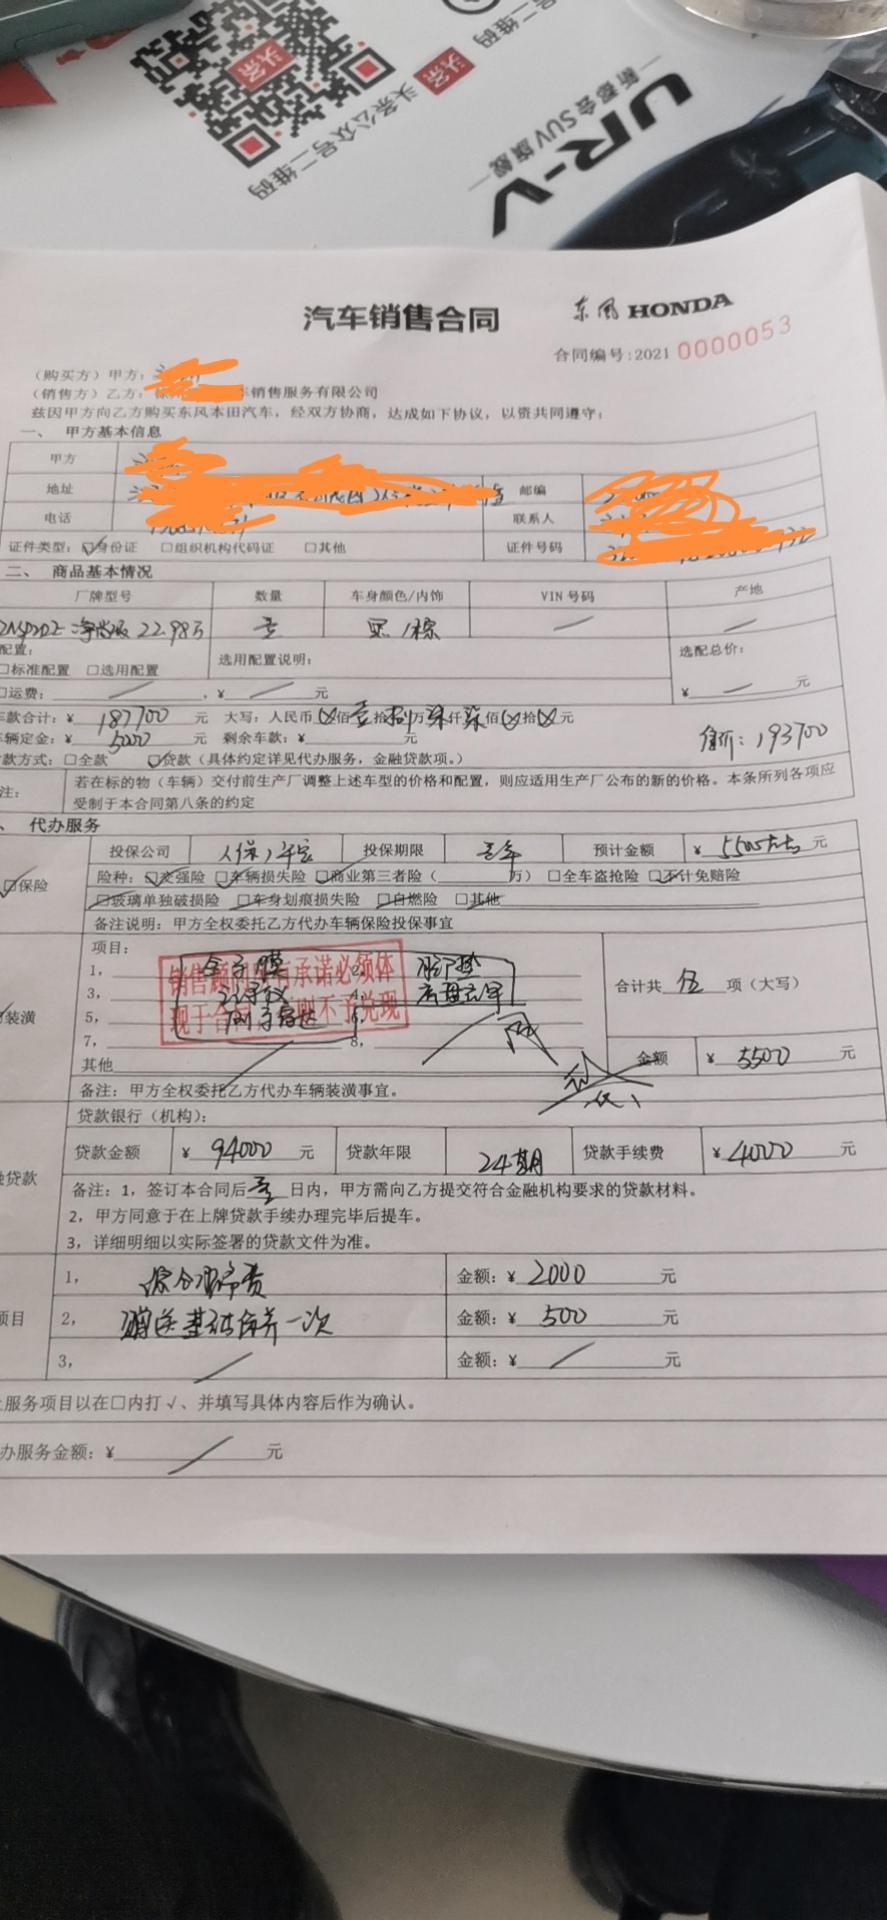 头条
头条公众号二维码
UR-V
新都会SUV旗舰
汽车销售合同
东风 HONDA
合同编号:2021 0000053
(购买方)甲方:
(销售方)乙方: 车销售服务有限公司
兹因甲方向乙方购买东风本田汽车，经双方协商，达成如下协议，以资共同遵守:
一、 甲方基本信息
甲方
地址 邮编
电话 联系人
证件类型: ☑身份证 □组织机构代码证 □其他 证件号码
二、 商品基本情况
厂牌型号 数量 车身颜色/内饰 VIN 号码 产地
22.98万 壹 黑/棕
配置: 选用配置说明: 选配总价:
□标准配置 □选用配置 ¥ 元
□运费: , ¥ 元
车款合计: ¥ 187700 元 大写: 人民币 佰壹拾捌万柒仟柒佰 拾 元
车辆定金: ¥ 5000 元 剩余车款: ¥ 元
售价: 193700
付款方式: □全款 ☑贷款 (具体约定详见代办服务，金融贷款项。)
注: 若在标的物(车辆)交付前生产厂调整上述车型的价格和配置，则应适用生产厂公布的新的价格。本条所列各项应
受制于本合同第八条的约定
、 代办服务
投保公司 人保/平安 投保期限 壹年 预计金额 ¥ 5500左右 元
☑保险
险种: ☑交强险 ☑车辆损失险 ☑商业第三者险( 万) □全车盗抢险 ☑不计免赔险
□玻璃单独破损险 □车身划痕损失险 □自燃险 □其他
备注说明: 甲方全权委托乙方代办车辆保险投保事宜
装潢
项目:
1, 全车膜 2, 脚垫
3, 记录仪 4,
5, 6,
7, 8,
销售顾问所有承诺必须体
现于合同 否则不予兑现
合计共 伍 项(大写)
其他 金额 ¥ 5500 元
备注: 甲方全权委托乙方代办车辆装潢事宜。
贷款银行(机构):
贷款
贷款金额 ¥ 94000 元 贷款年限 24期 贷款手续费 ¥ 4000 元
备注: 1, 签订本合同后 壹 日内，甲方需向乙方提交符合金融机构要求的贷款材料。
2, 甲方同意于在上牌贷款手续办理完毕后提车。
3, 详细明细以实际签署的贷款文件为准。
项目
1, 综合服务费 金额: ¥ 2000 元
2, 赠送基础保养一次 金额: ¥ 500 元
3, 金额: ¥ 元
上服务项目以在□内打√、并填写具体内容后作为确认。
办服务金额: ¥ 元